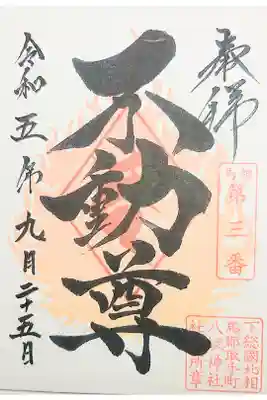 奉拝
相馬
第三番
下総國北相
馬郡取手町
八坂神社
社務所章
不動尊
令和五年九月二十五日